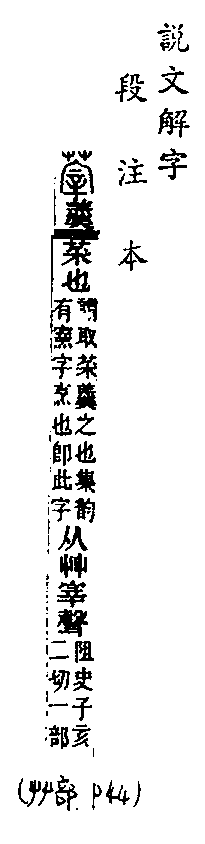 說文解字
段注本
䔂羹菜也
謂取菜羹之也集韵
有字烹也即此字
从艸宰聲
阻史子亥
二切一部
(艸部 P44)